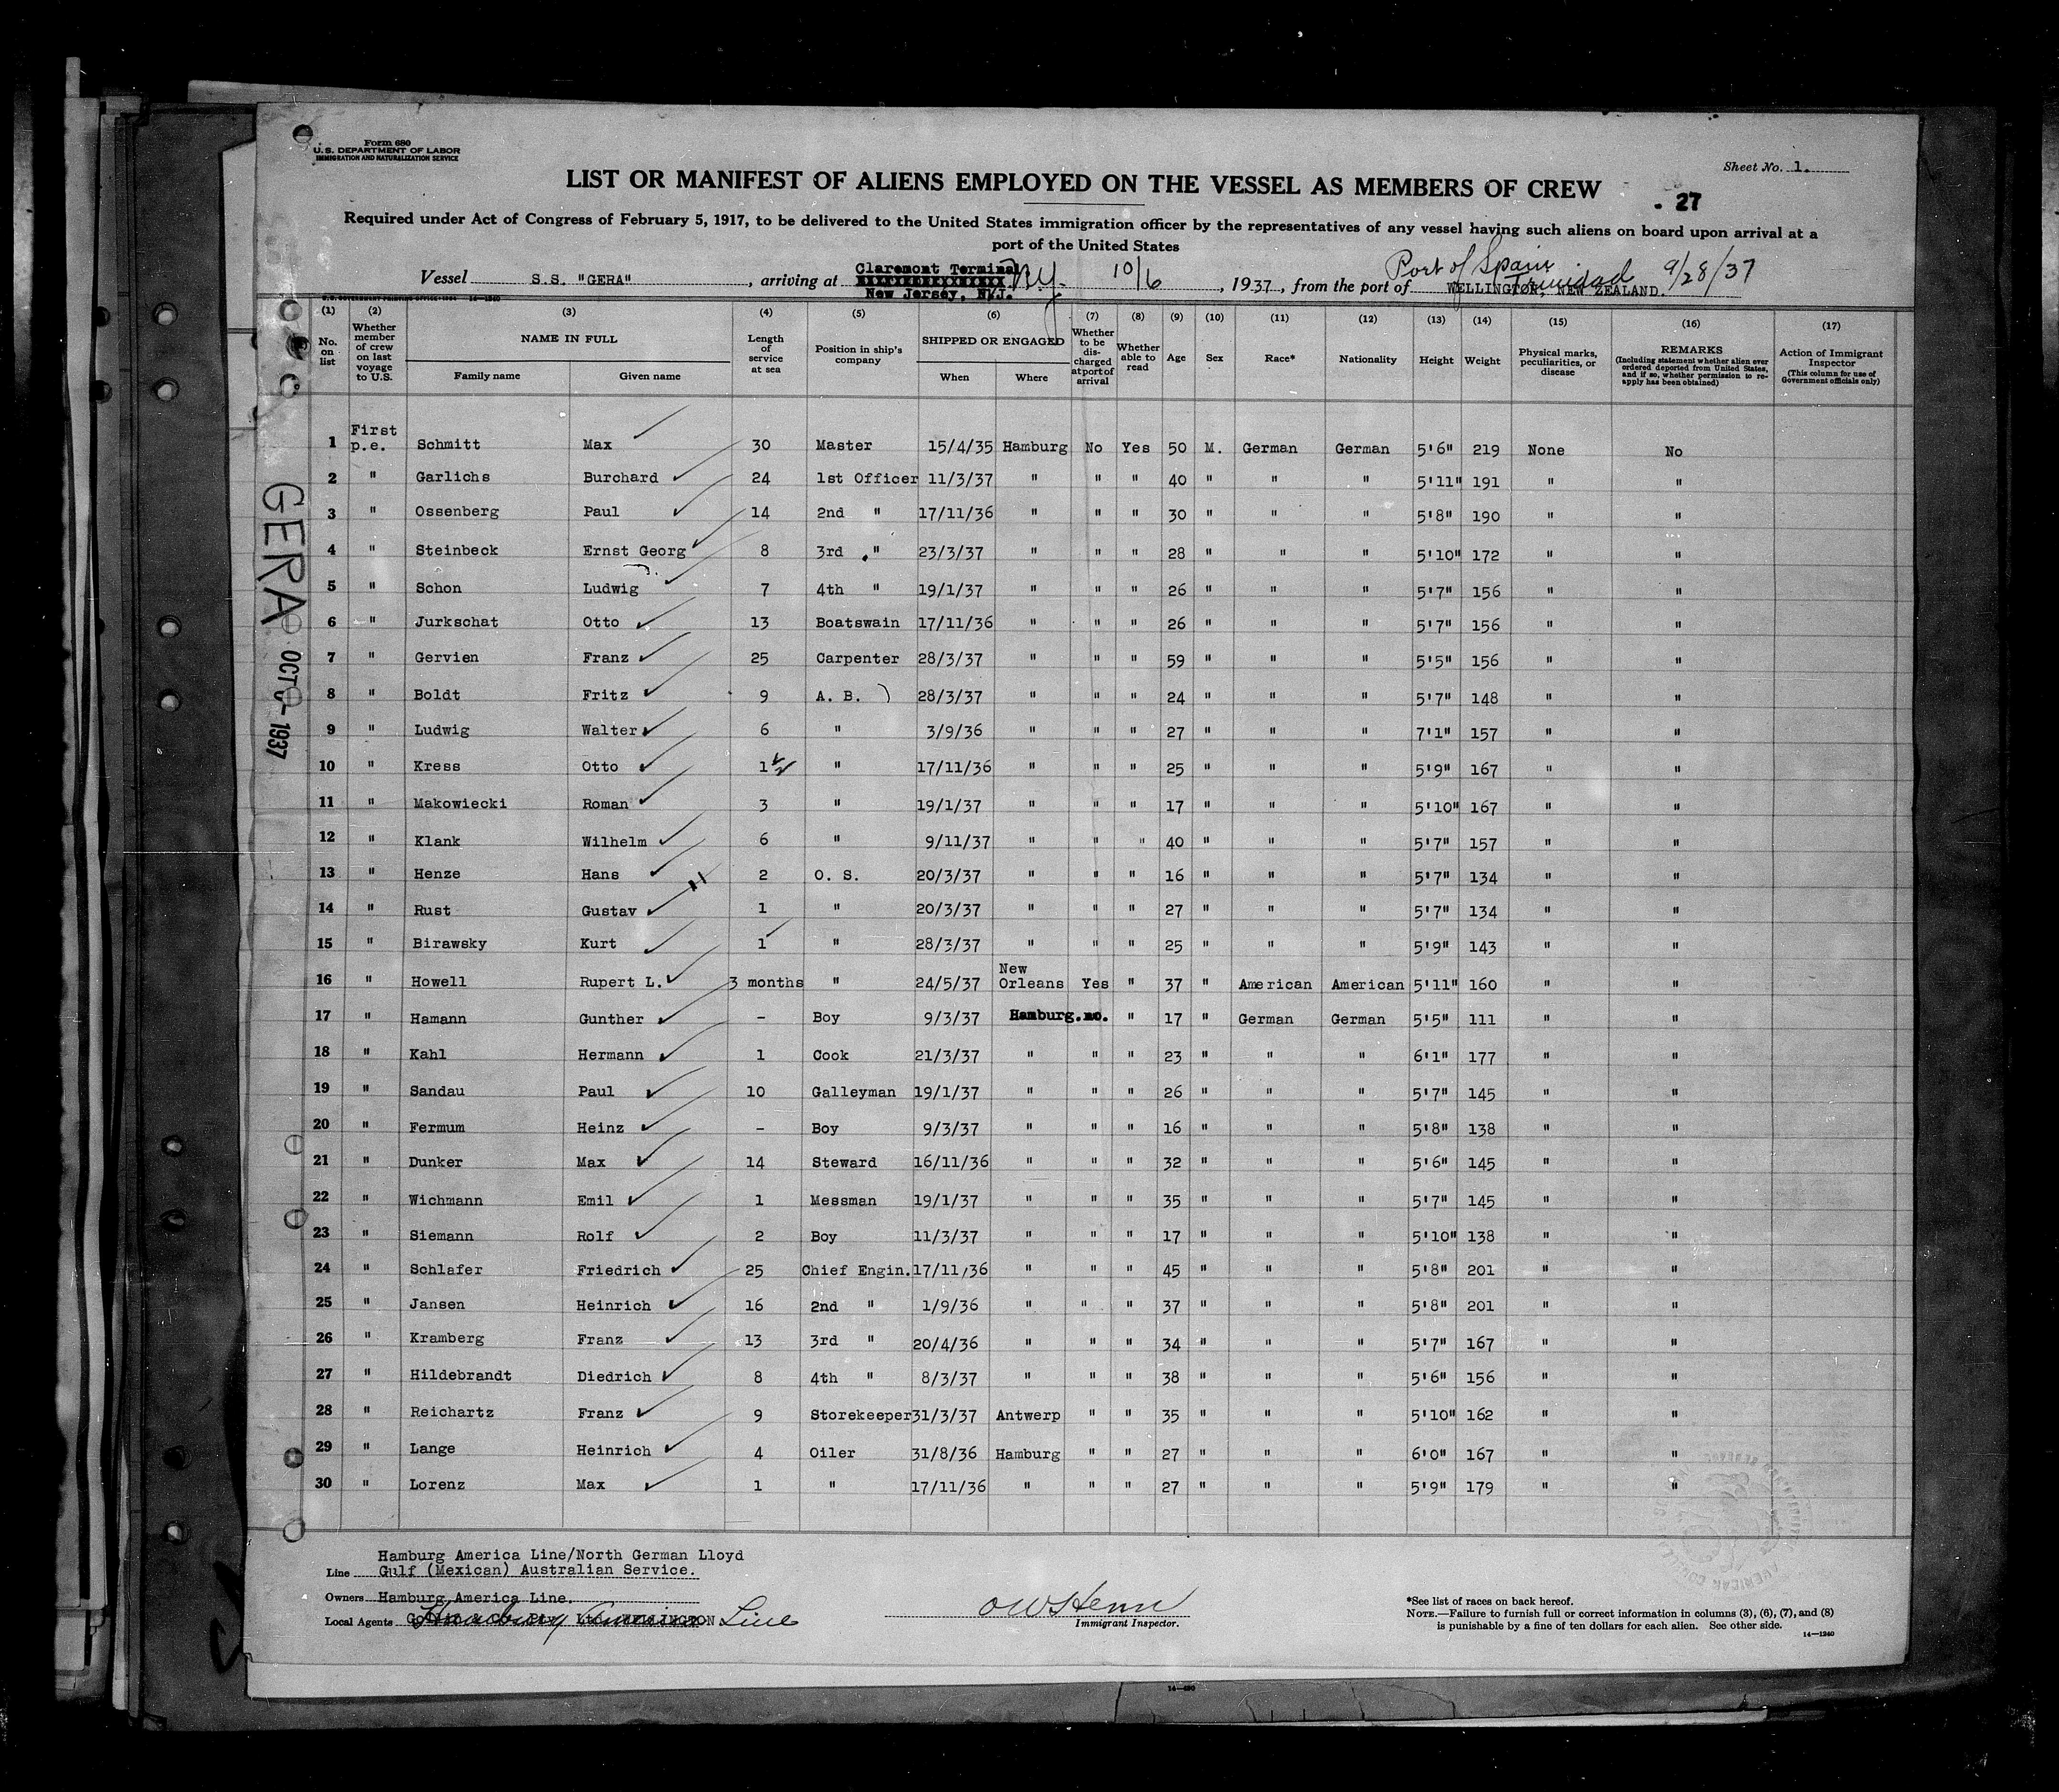 Form 680
U.S. DEPARTMENT OF LABOR
IMMIGRATION AND NATURALIZATION SERVICE
Sheet No. 1.
LIST OR MANIFEST OF ALIENS EMPLOYED ON THE VESSEL AS MEMBERS OF CREW
- 27
Required under Act of Congress of February 5, 1917, to be delivered to the United States immigration officer by the representatives of any vessel having such aliens on board upon arrival at a
port of the United States
Vessel S.S. "GERA", arriving at Claremont Terminal New Jersey, N.J. N.Y. 10/6, 1937, from the port of WELLINGTON, NEW ZEALAND. Port of Spain Trinidad 9/28/37
U.S. GOVERNMENT PRINTING OFFICE: 1934 14—1240
(1) (2) (3) (4) (5) (6) (7) (8) (9) (10) (11) (12) (13) (14) (15) (16) (17)
No. on list | Whether member of crew on last voyage to U.S. | NAME IN FULL | Family name | Given name | Length of service at sea | Position in ship's company | SHIPPED OR ENGAGED | When | Where | Whether to be discharged at port of arrival | Whether able to read | Age | Sex | Race* | Nationality | Height | Weight | Physical marks, peculiarities, or disease | REMARKS (Including statement whether alien ever ordered deported from United States, and if so, whether permission to reapply has been obtained) | Action of Immigrant Inspector (This column for use of Government officials only)
1 First p.e. Schmitt Max 30 Master 15/4/35 Hamburg No Yes 50 M. German German 5'6" 219 None No
2 " Garlichs Burchard 24 1st Officer 11/3/37 " " " 40 " " " 5'11" 191 " "
3 " Ossenberg Paul 14 2nd " 17/11/36 " " " 30 " " " 5'8" 190 " "
4 " Steinbeck Ernst Georg 8 3rd " 23/3/37 " " " 28 " " " 5'10" 172 " "
5 " Schon Ludwig 7 4th " 19/1/37 " " " 26 " " " 5'7" 156 " "
6 " Jurkschat Otto 13 Boatswain 17/11/36 " " " 26 " " " 5'7" 156 " "
7 " Gervien Franz 25 Carpenter 28/3/37 " " " 59 " " " 5'5" 156 " "
8 " Boldt Fritz 9 A. B. ) 28/3/37 " " " 24 " " " 5'7" 148 " "
9 " Ludwig Walter 6 " 3/9/36 " " " 27 " " " 7'1" 157 " "
10 " Kress Otto 1½ " 17/11/36 " " " 25 " " " 5'9" 167 " "
11 " Makowiecki Roman 3 " 19/1/37 " " " 17 " " " 5'10" 167 " "
12 " Klank Wilhelm 6 " 9/11/37 " " " 40 " " " 5'7" 157 " "
13 " Henze Hans 2 O. S. 20/3/37 " " " 16 " " " 5'7" 134 " "
14 " Rust Gustav 1 " 20/3/37 " " " 27 " " " 5'7" 134 " "
15 " Birawsky Kurt 1 " 28/3/37 " " " 25 " " " 5'9" 143 " "
16 " Howell Rupert L. 3 months " 24/5/37 New Orleans Yes " 37 " American American 5'11" 160 " "
17 " Hamann Gunther - Boy 9/3/37 Hamburg. no. " 17 " German German 5'5" 111 " "
18 " Kahl Hermann 1 Cook 21/3/37 " " " 23 " " " 6'1" 177 " "
19 " Sandau Paul 10 Galleyman 19/1/37 " " " 26 " " " 5'7" 145 " "
20 " Fermum Heinz - Boy 9/3/37 " " " 16 " " " 5'8" 138 " "
21 " Dunker Max 14 Steward 16/11/36 " " " 32 " " " 5'6" 145 " "
22 " Wichmann Emil 1 Messman 19/1/37 " " " 35 " " " 5'7" 145 " "
23 " Siemann Rolf 2 Boy 11/3/37 " " " 17 " " " 5'10" 138 " "
24 " Schlafer Friedrich 25 Chief Engin. 17/11/36 " " " 45 " " " 5'8" 201 " "
25 " Jansen Heinrich 16 2nd " 1/9/36 " " " 37 " " " 5'8" 201 " "
26 " Kramberg Franz 13 3rd " 20/4/36 " " " 34 " " " 5'7" 167 " "
27 " Hildebrandt Diedrich 8 4th " 8/3/37 " " " 38 " " " 5'6" 156 " "
28 " Reichartz Franz 9 Storekeeper 31/3/37 Antwerp " " 35 " " " 5'10" 162 " "
29 " Lange Heinrich 4 Oiler 31/8/36 Hamburg " " 27 " " " 6'0" 167 " "
30 " Lorenz Max 1 " 17/11/36 " " " 27 " " " 5'9" 179 " "
GERA OCT 6 - 1937
Line Hamburg America Line/North German Lloyd
Gulf (Mexican) Australian Service.
Owners Hamburg America Line.
Local Agents WELLINGTON Hamburg America Line
Immigrant Inspector.
*See list of races on back hereof.
NOTE.—Failure to furnish full or correct information in columns (3), (6), (7), and (8)
is punishable by a fine of ten dollars for each alien. See other side.
14—1240